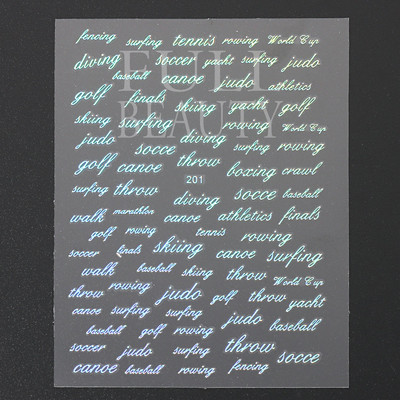 fencing surfing tennis rowing World Cup
diving soccer yacht surfing judo
baseball canoe judo athletics
FULL
golf finals skiing yacht golf
BEAUTY
skiing surfing rowing World Cup
judo socce diving surfing
golf canoe throw boxing crawl
201
surfing throw diving socce baseball
walk marathlon canoe athletics finals
golf rowing tennis rowing
soccer finals skiing canoe surfing
walk baseball skiing throw World Cup
throw rowing judo golf throw yacht
canoe surfing surfing judo baseball
baseball golf rowing
soccer judo surfing throw socce
canoe baseball rowing fencing